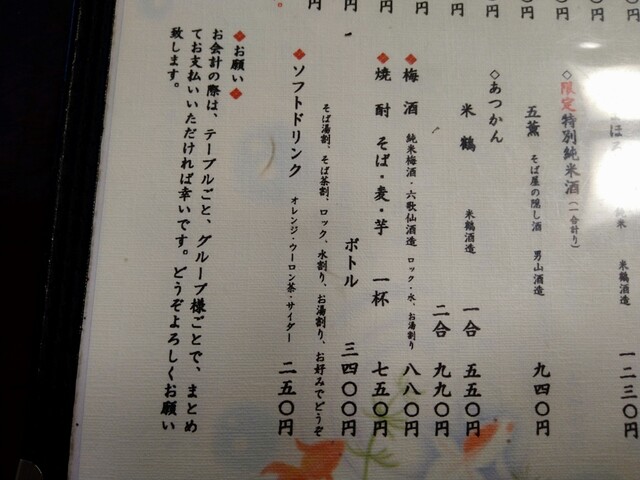 一二三〇円
米鶴酒造
◇限定特別純米酒(一合計り)
五薫 そば屋の隠し酒 男山酒造 九四〇円
◇あつかん
米鶴 米鶴酒造 一合 五五〇円
二合 九九〇円
◆梅酒 純米梅酒・六歌仙酒造 ロック・水、お湯割り 八八〇円
◆焼酎 そば・麦・芋 一杯 七五〇円
ボトル 三四〇〇円
そば湯割、そば茶割、ロック、水割り、お湯割り、お好みでどうぞ
◆ソフトドリンク オレンジ・ウーロン茶・サイダー 二五〇円
◆お願い◆
お会計の際は、テーブルごと、グループ様ごとで、まとめ
てお支払いいただければ幸いです。どうぞよろしくお願い
致します。